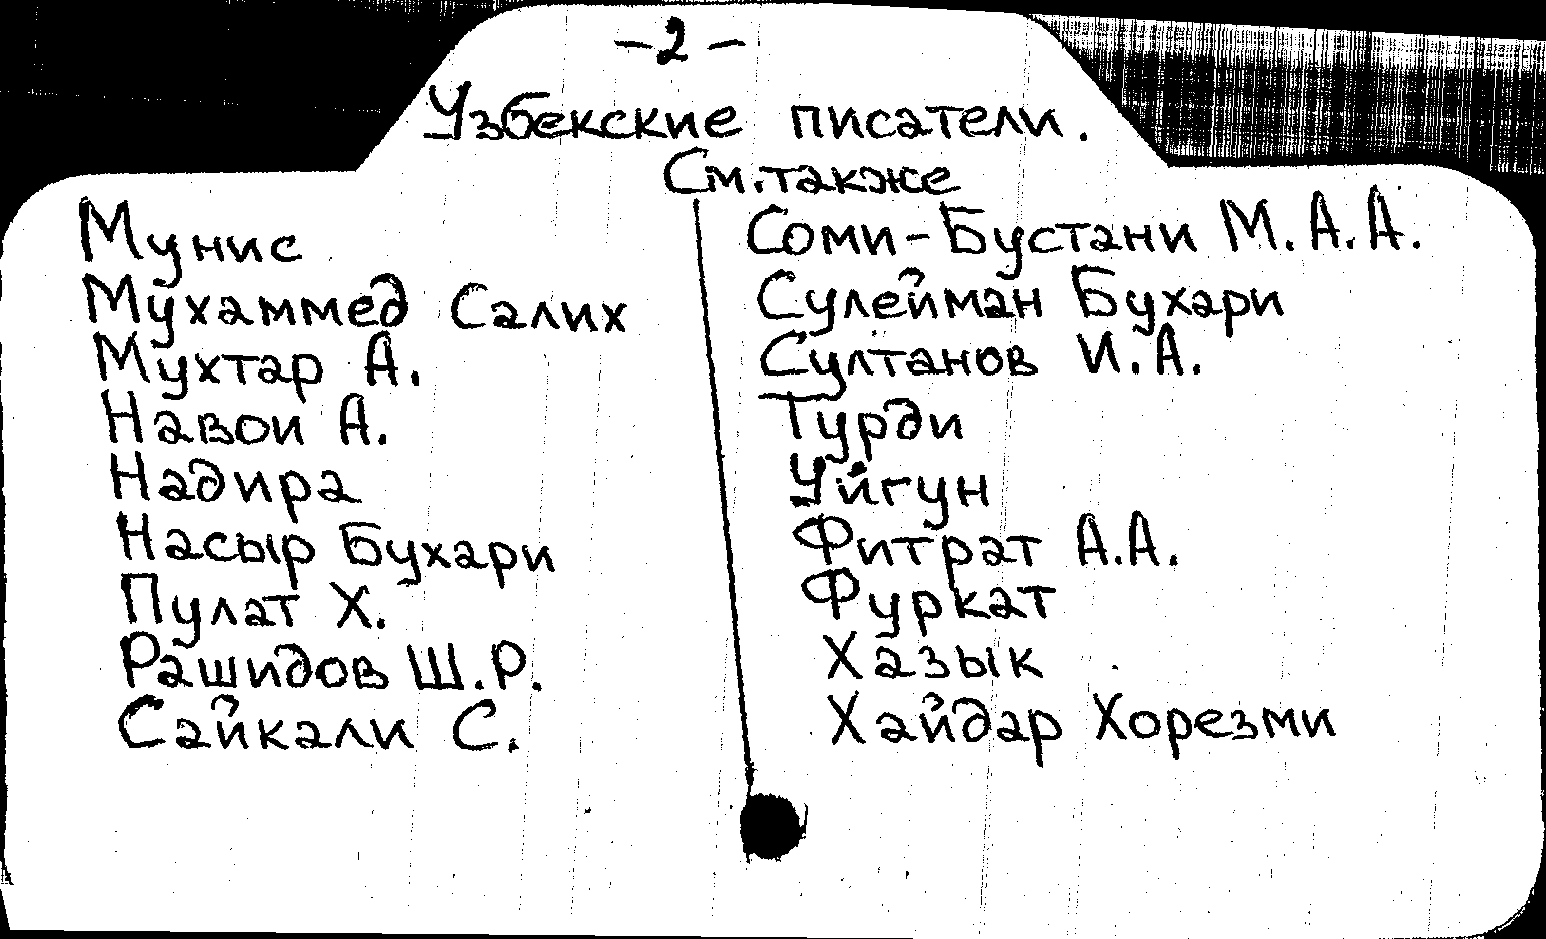 -2-
Узбекские писатели.
См. также
Мунис
Мухаммед Салих
Мухтар А.
Навои А.
Надира
Насыр Бухари
Пулат Х.
Рашидов Ш.Р.
Сайкали С.
Соми-Бустани М.А.А.
Сулейман Бухари
Султанов И.А.
Турди
Уйгун
Фитрат А.А.
Фуркат
Хазык
Хайдар Хорезми